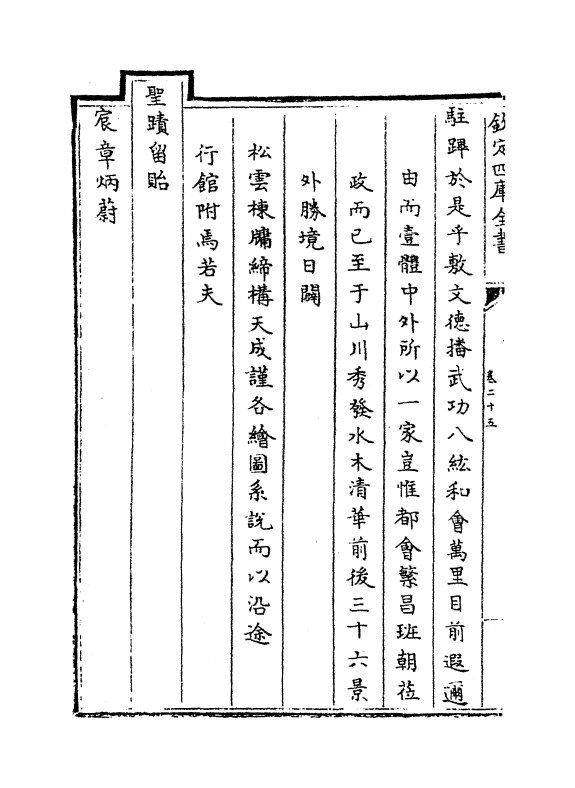 欽定四庫全書
卷二十五
駐蹕於是乎敷文德播武功八紘和會萬里目前遐邇
由而壹體中外所以一家豈惟都會繁昌班朝莅
政而已至于山川秀發水木清華前後三十六景
外勝境日闢
松雲棟牖締構天成謹各繪圖系說而以沿途
行館附焉若夫
聖蹟留貽
宸章炳蔚